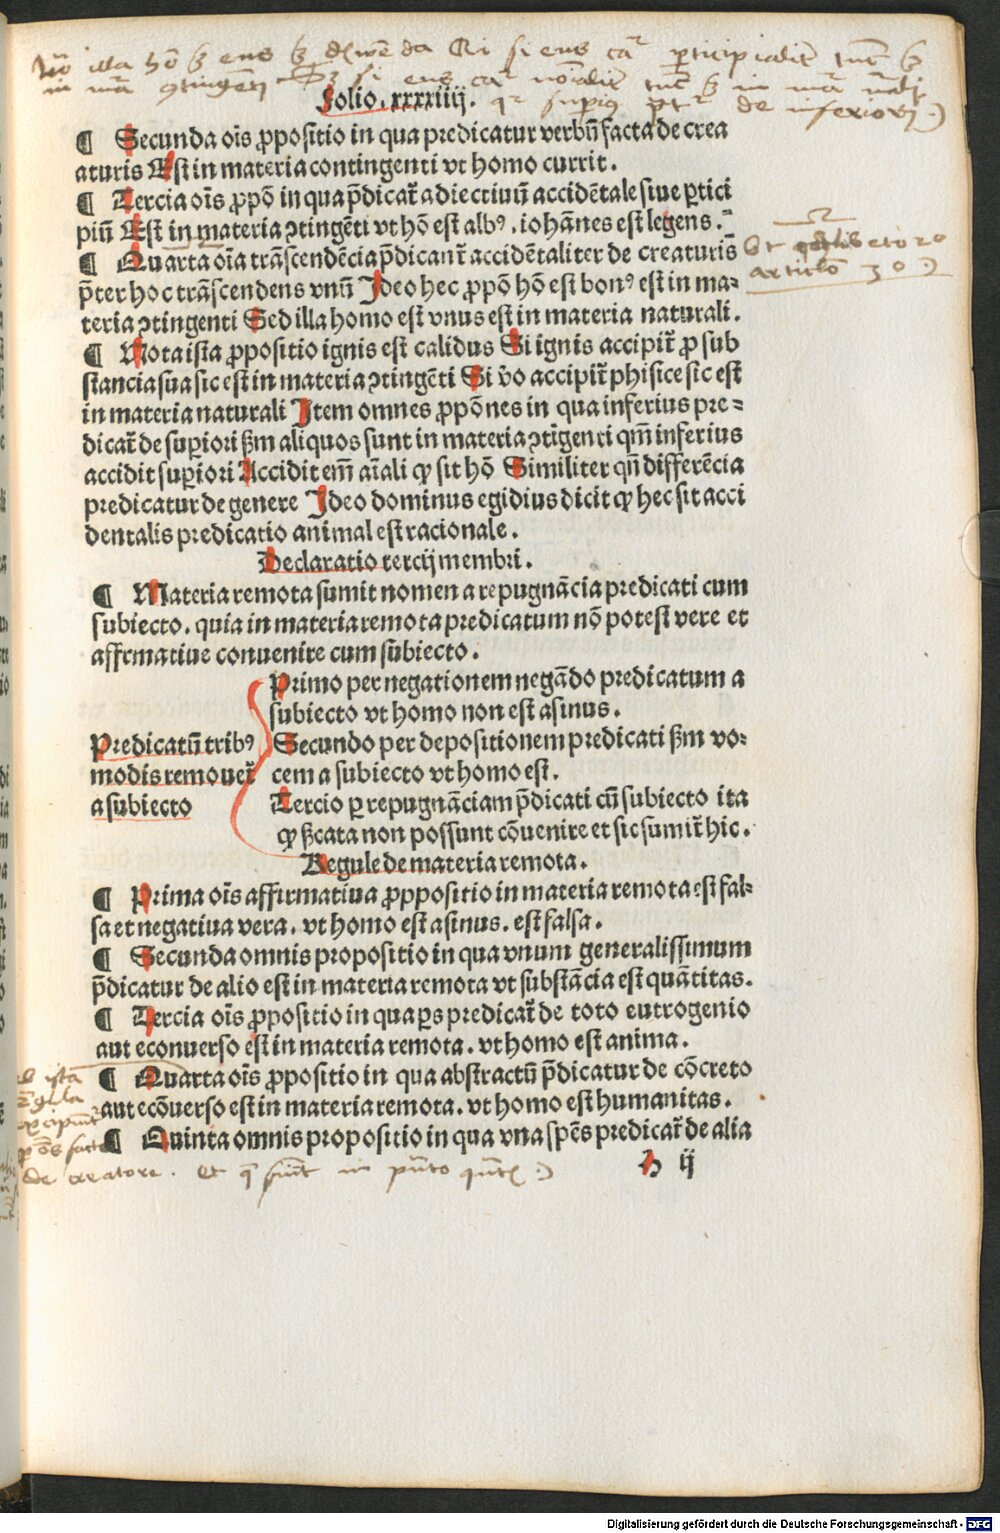 illa hō
Folio. xxxxiiij.
¶ Secunda oīs ꝓpositio in qua predicatur verbū facta de crea
aturis Est in materia contingenti vt homo currit.
¶ Tercia oīs ꝓpō in qua p̄dicat̃ adiectiuū accidētale siue ꝑtici
piū Est in materia ꝯtingēti vt hō est albꝰ. iohānes est legens.
¶ Quarta oīa trāscendēcia p̄dicant̃ accidētaliter de creaturis
p̄ter hoc trāscendens vnū Ideo hec ꝓpō hō est bonꝰ est in ma-
teria ꝯtingenti Sed illa homo est vnus est in materia naturali.
¶ Nota ista ꝓpositio ignis est calidus Si ignis accipit̃ ꝓ sub
stancia sua sic est in materia ꝯtingēti Si v̄o accipit̃ phisice sic est
in materia naturali Item omnes ꝓpōnes in qua inferius pre-
dicat̃ de suꝑiori ẜm aliquos sunt in materia ꝯtīgenti qm̄ inferius
accidit suꝑiori Accidit em̄ aīali ꝙ sit hō Similiter qn̄ differēcia
predicatur de genere Ideo dominus egidius dicit ꝙ hec sit acci
dentalis predicatio animal est racionale.
Declaratio tercij membri.
¶ Materia remota sumit nomen a repugnācia predicati cum
subiecto. quia in materia remota predicatum nō potest vere et
affrmatiue conuenire cum subiecto.
Predicatū tribꝰ
modis remouet̃
a subiecto
Primo per negationem negādo predicatum a
subiecto vt homo non est asinus.
Secundo per depositionem predicati ẜm vo-
cem a subiecto vt homo est.
Tercio ꝑ repugnāciam p̄dicati cū subiecto ita
ꝙ ẜcata non possunt cōuenire et sic sumit̃ hic.
Regule de materia remota.
¶ Prima oīs affirmatiua ꝓppositio in materia remota est fal-
sa et negatiua vera. vt homo est asinus. est falsa.
¶ Secunda omnis propositio in qua vnum generalissimum
p̄dicatur de alio est in materia remota vt substācia est quātitas.
¶ Tercia oīs ꝓpositio in qua ꝑs predicat̃ de toto eutrogenio
aut econuerso est in materia remota. vt homo est anima.
¶ Quarta oīs ꝓpositio in qua abstractū p̄dicatur de cōcreto
aut ecōuerso est in materia remota. vt homo est humanitas.
¶ Quinta omnis propositio in qua vna spēs predicat̃ de alia
de creatore. Et
h ij
Digitalisierung gefördert durch die Deutsche Forschungsgemeinschaft - DFG